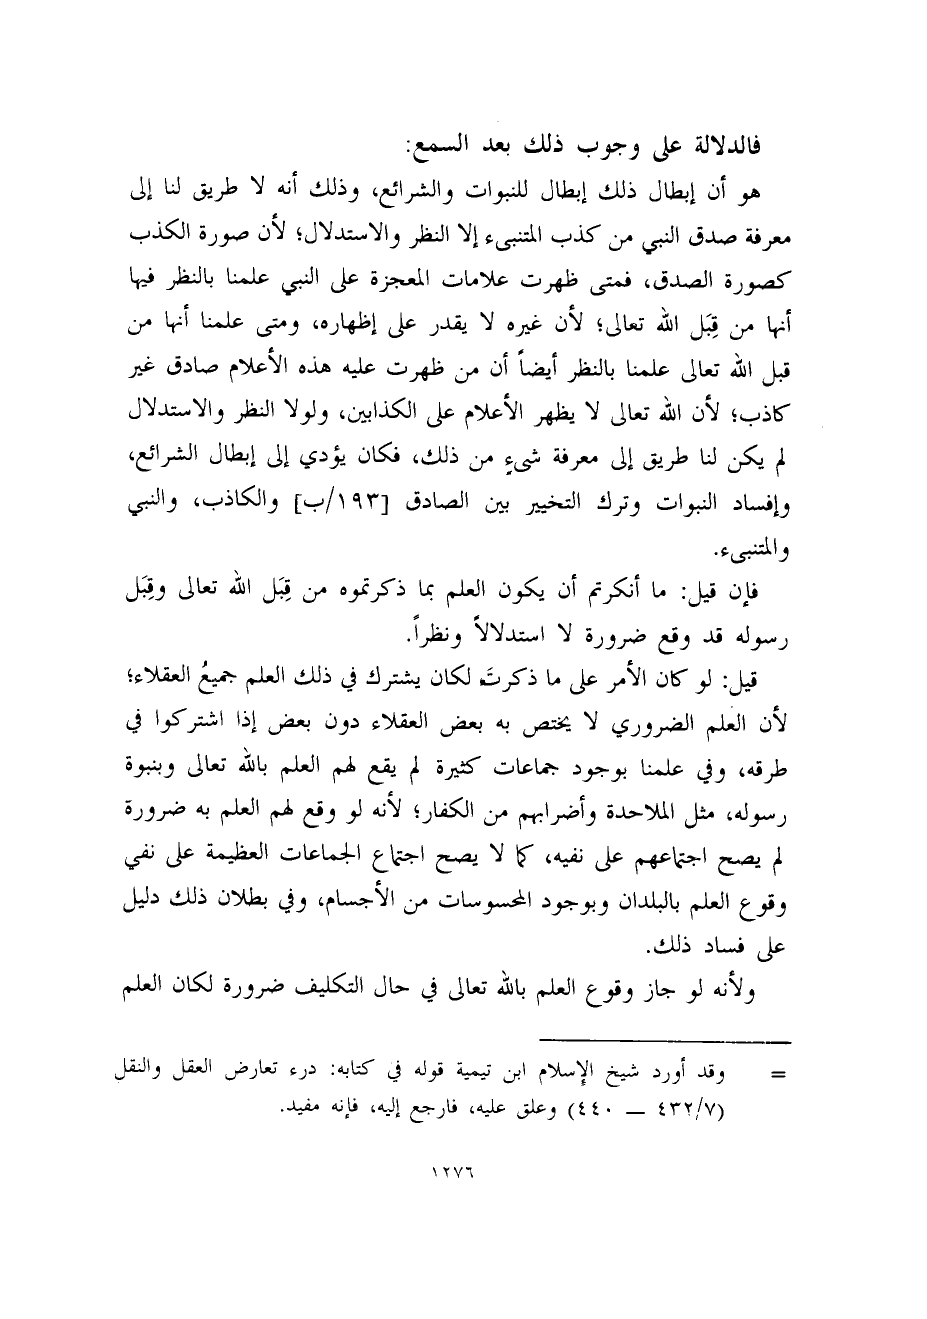 فالدلالة على وجوب ذلك بعد السمع:
هو أن إبطال ذلك إبطال للنبوات والشرائع، وذلك أنه لا طريق لنا إلى
معرفة صدق النبي من كذب المتنبىء إلا النظر والاستدلال؛ لأن صورة الكذب
كصورة الصدق، فمتى ظهرت علامات المعجزة على النبي علمنا بالنظر فيها
أنها من قِبَل الله تعالى؛ لأن غيره لا يقدر على إظهاره، ومتى علمنا أنها من
قبل الله تعالى علمنا بالنظر أيضاً أن من ظهرت عليه هذه الأعلام صادق غير
كاذب؛ لأن الله تعالى لا يظهر الأعلام على الكذابين، ولولا النظر والاستدلال
لم يكن لنا طريق إلى معرفة شيءٍ من ذلك، فكان يؤدي إلى إبطال الشرائع،
وإفساد النبوات وترك التخيير بين الصادق [١٩٣/ب] والكاذب، والنبي
والمتنبىء.
فإن قيل: ما أنكرتم أن يكون العلم بما ذكرتموه من قِبَل الله تعالى وقِبَل
رسوله قد وقع ضرورة لا استدلالاً ونظراً.
قيل: لو كان الأمر على ما ذكرتَ لكان يشترك في ذلك العلم جميعُ العقلاء؛
لأن العلم الضروري لا يختص به بعض العقلاء دون بعض إذا اشتركوا في
طرقه، وفي علمنا بوجود جماعات كثيرة لم يقع لهم العلم بالله تعالى وبنبوة
رسوله، مثل الملاحدة وأضرابهم من الكفار؛ لأنه لو وقع لهم العلم به ضرورة
لم يصح اجتماعهم على نفيه، كما لا يصح اجتماع الجماعات العظيمة على نفي
وقوع العلم بالبلدان وبوجود المحسوسات من الأجسام، وفي بطلان ذلك دليل
على فساد ذلك.
ولأنه لو جاز وقوع العلم بالله تعالى في حال التكليف ضرورة لكان العلم
= وقد أورد شيخ الإسلام ابن تيمية قوله في كتابه: درء تعارض العقل والنقل
(٤٣٢/٧ — ٤٤٠) وعلق عليه، فارجع إليه، فإنه مفيد.
١٢٧٦